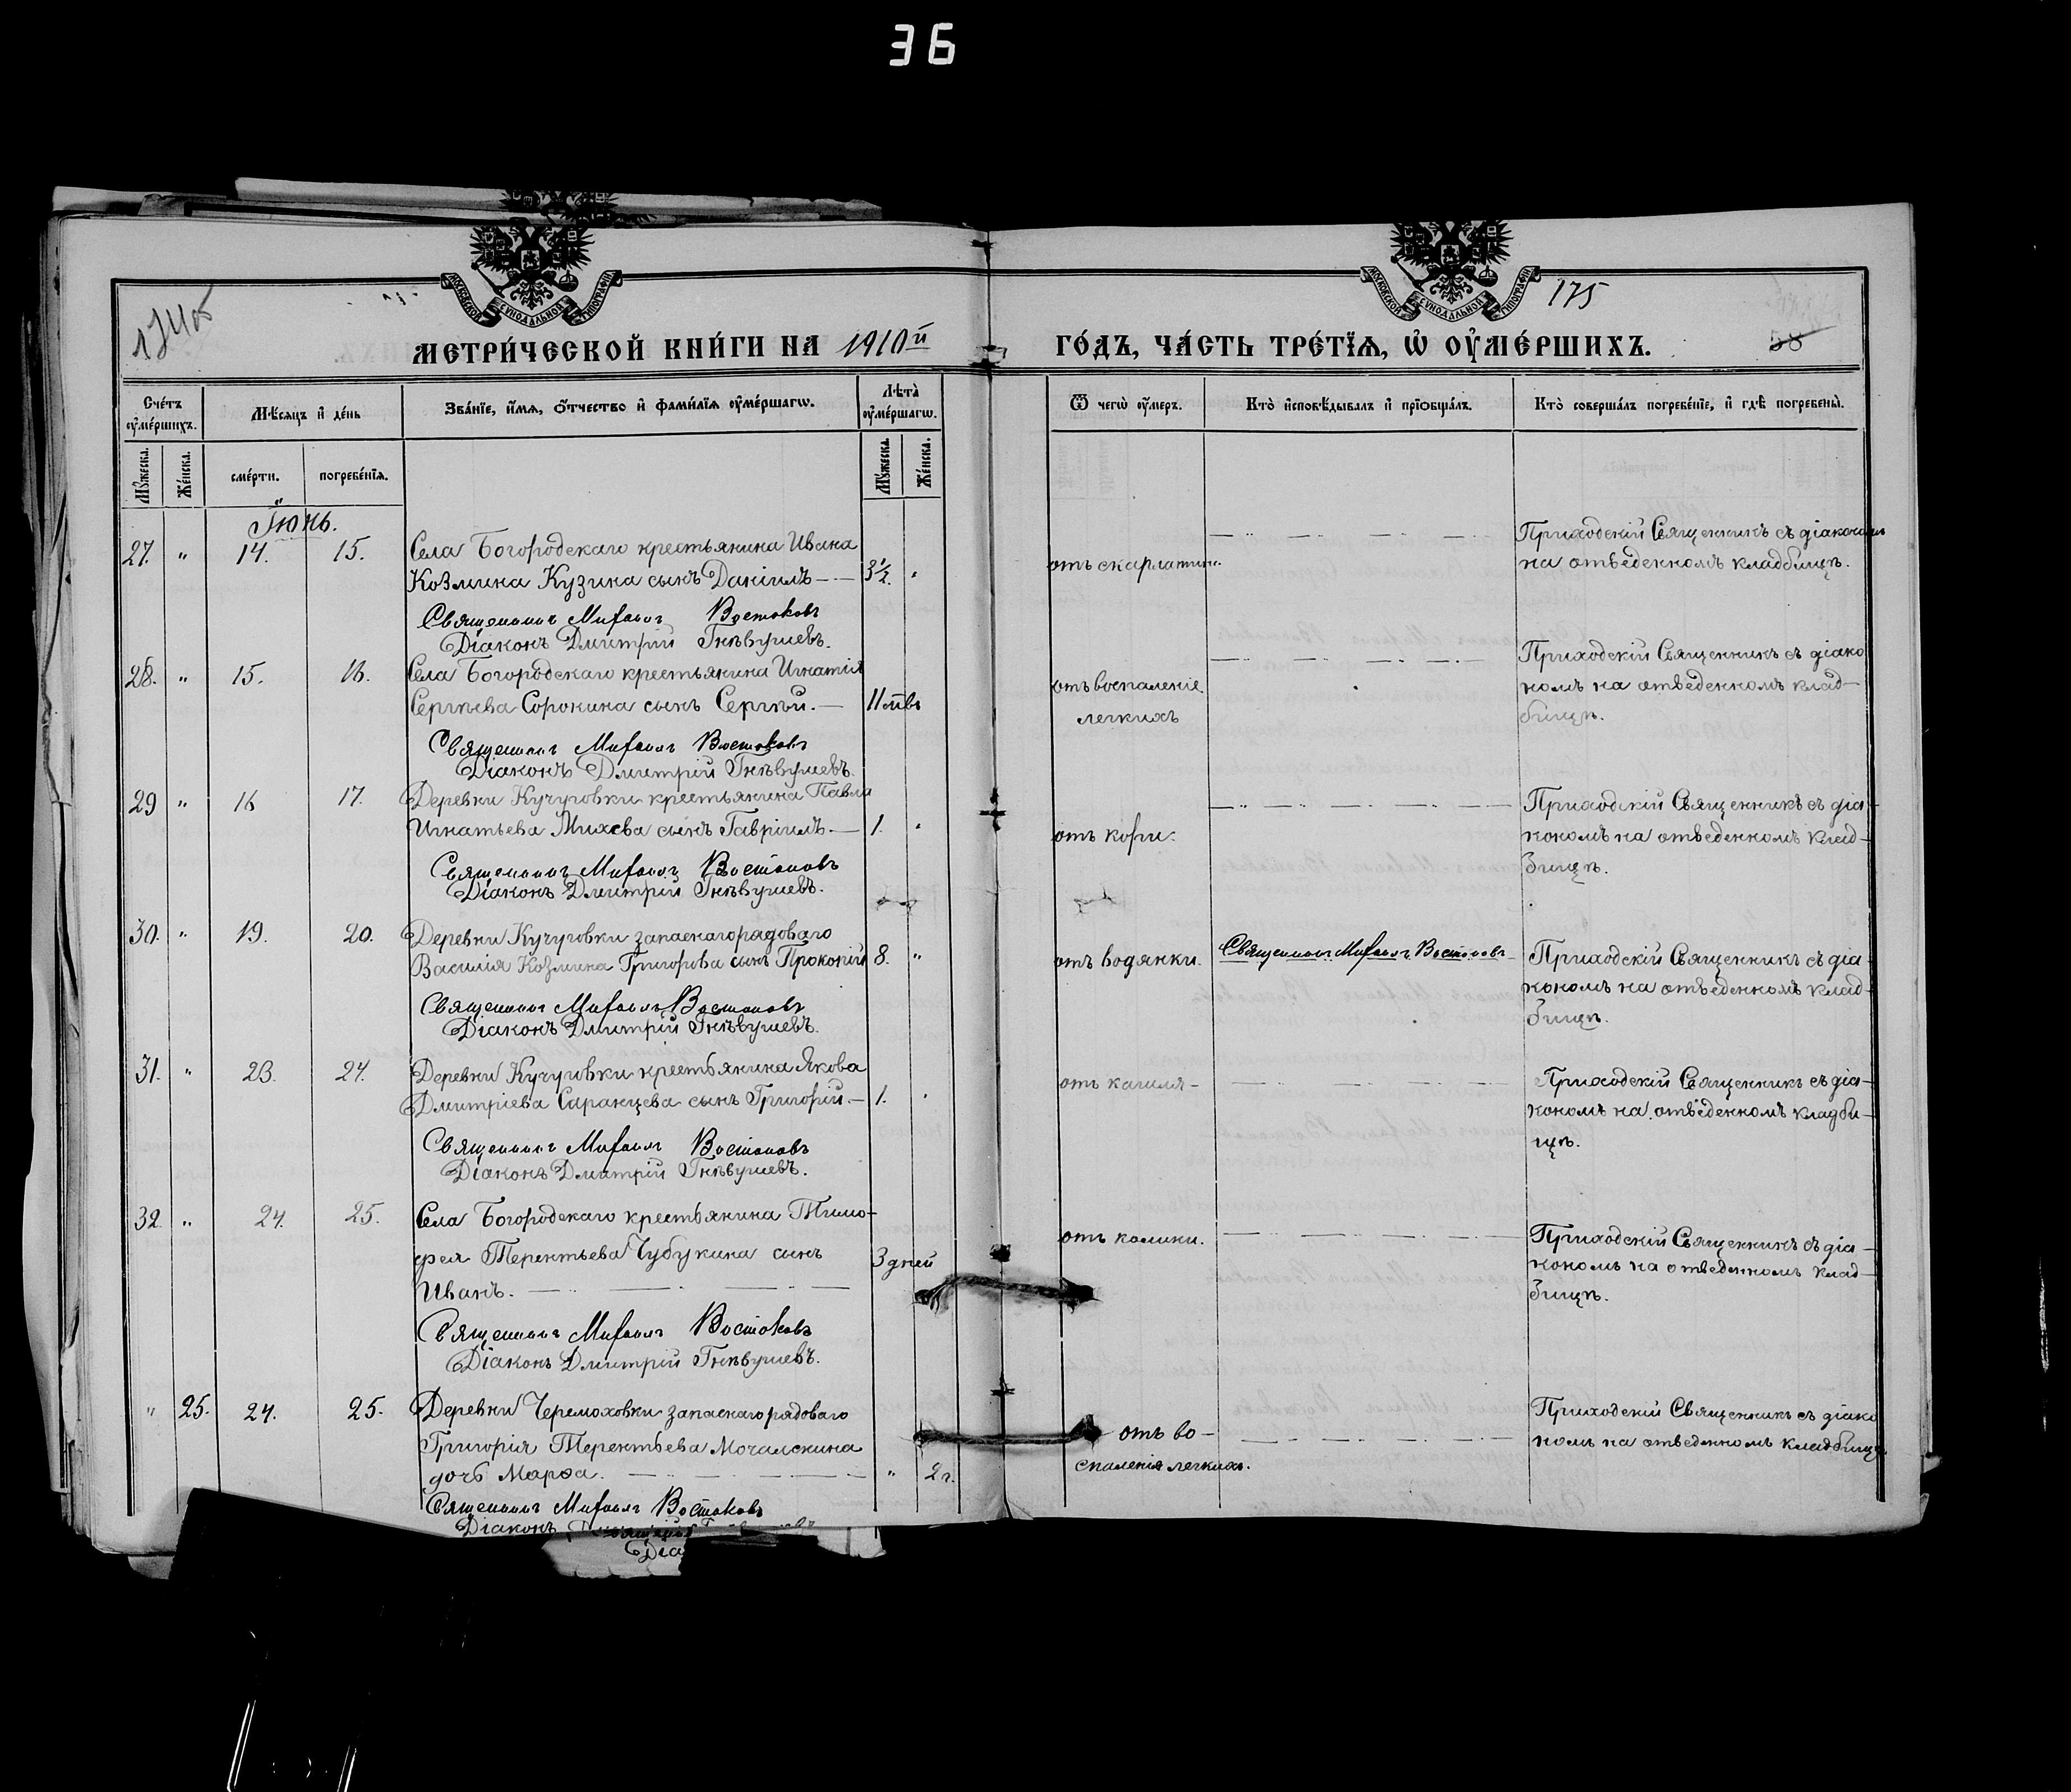 36
МОСКОВСКОЙ СУНОДАЛЬНОЙ ТИПОГРАФІИ
МОСКОВСКОЙ СУНОДАЛЬНОЙ ТИПОГРАФІИ
174об
175
58
МЕТРИ́ЧЕСКОЙ КНИ́ГИ НА 1910й ГО́ДЪ, ЧА́СТЬ ТРЕ́ТЇѦ, Ѡ҆ ОУ҆МЕ́РШИХЪ.
Сче́тъ оу҆ме́ршихъ.
Мѣ́сяцъ и҆ де́нь
Зва́нїе, и҆́мѧ, ѻ҆́тчество и҆ фами́лїѧ оу҆ме́ршагѡ.
Лѣта̀ оу҆ме́ршагѡ.
Ѿ чегѡ̀ оу҆́меръ.
Кто̀ и҆сповѣ́дывалъ и҆ прїѻбща́лъ.
Кто̀ соверша́лъ погребе́нїе, и҆ гдѣ̀ погребены̀.
Мꙋ́жеска. Же́нска. сме́рти. погребе́нїѧ. Мꙋ́жеска. Же́нска.
Іюнь.
27. " 14. 15. Села Богородскаго крестьянина Ивана
Козмина Кузина сынъ Даніилъ — 3½ "
Священникъ Михаилъ Востоковъ
Діаконъ Дмитрій Гнѣвушевъ.
отъ скарлатин.
Приходскій Священникъ съ діакономъ
на отведенномъ кладбищѣ.
28. " 15. 16. Села Богородскаго крестьянина Игнатія
Сергѣева Сорокина сынъ Сергѣй. — 11 м̃въ
Священникъ Михаилъ Востоковъ
Діаконъ Дмитрій Гнѣвушевъ.
отъ воспаленіе
легкихъ
Приходскій Священникъ съ діако
номъ на отведенномъ клад—
бищѣ.
29 " 16 17. Деревни Кучуговки крестьянина Павла
Игнатьева Михева сынъ Гавріилъ. — 1. "
Священникъ Михаилъ Востоковъ
Діаконъ Дмитрій Гнѣвушевъ.
отъ кори.
Приходскій Священникъ съ діа—
кономъ на отведенномъ клад—
бищѣ.
30. " 19. 20. Деревни Кучуговки запаснаго рядоваго
Василія Козмина Григорова сынъ Прокопій 8. "
Священникъ Михаилъ Востоковъ
Діаконъ Дмитрій Гнѣвушевъ.
отъ водянки.
Священникъ Михаилъ Востоковъ
Приходскій Священникъ съ діа—
кономъ на отведенномъ клад—
бищѣ.
31. " 23. 24. Деревни Кучуговки крестьянина Якова
Дмитріева Саранцева сынъ Григорій. — 1. "
Священникъ Михаилъ Востоковъ
Діаконъ Дмитрій Гнѣвушевъ.
отъ кашля —
Приходскій Священникъ съ діа—
кономъ на отведенномъ кладби—
щѣ.
32. " 24. 25. Села Богородскаго крестьянина Тимо—
фея Терентьева Чубукина сынъ 3 дней
Иванъ.
Священникъ Михаилъ Востоковъ
Діаконъ Дмитрій Гнѣвушевъ.
отъ колики.
Приходскій Священникъ съ діа—
кономъ на отведенномъ клад—
бищѣ.
" 25. 24. 25. Деревни Черемоховки запаснаго рядоваго
Григорія Терентьева Мочалскина
дочь Марѳа. " 2 г.
Священникъ Михаилъ Востоковъ
Діаконъ
Діа
отъ во—
спаленія легкихъ.
Приходскій Священникъ съ діако
номъ на отведенномъ кладбищѣ